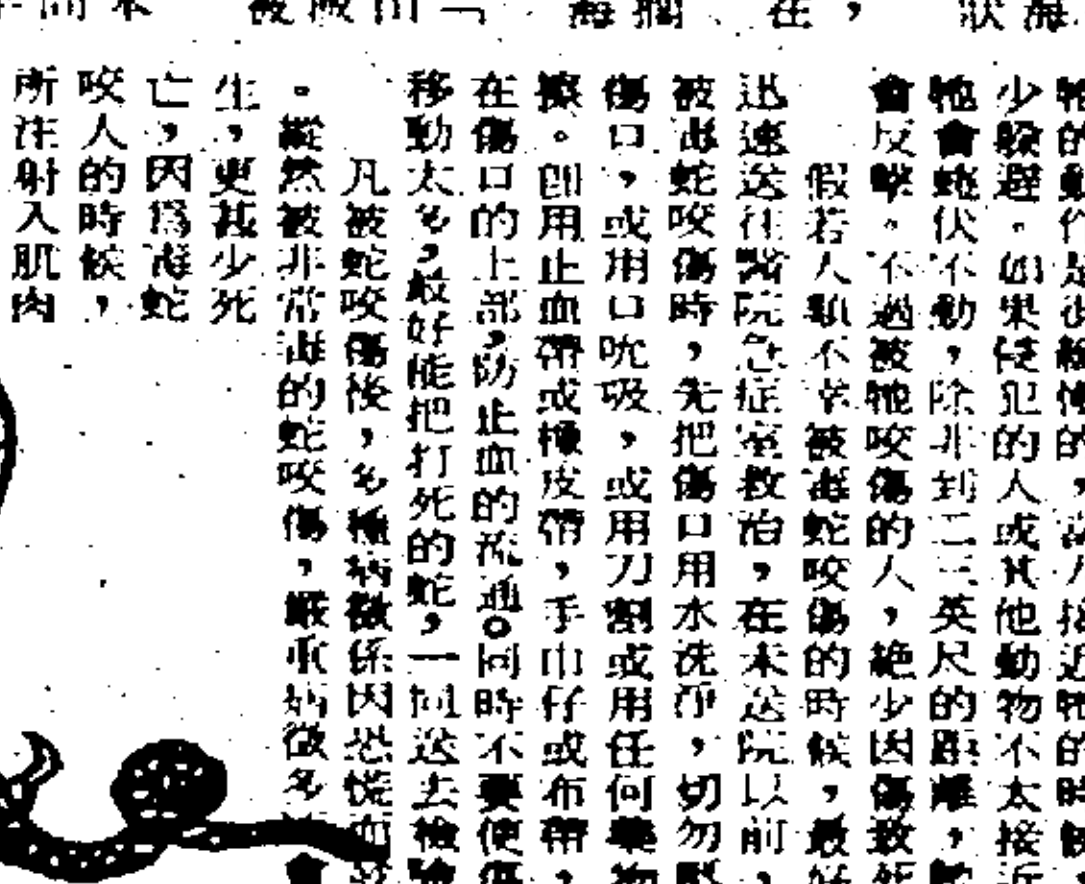 牠的動作是很緩慢的，當人接近牠的時候
少躱避。如果侵犯的人或其他動物不太接近
牠會蜷伏不動，除非到二三英尺的距離，牠
會反擊。不過被牠咬傷的人，絶少因傷致死
假若人類不幸被毒蛇咬傷的時候，最好
迅速送往醫院急症室救治，在未送院以前，
被毒蛇咬傷時，先把傷口用水洗淨，切勿緊
傷口，或用口吮吸，或用刀割或用任何藥物
擦。卽用止血帶或橡皮帶，手巾仔或布帶，
在傷口的上部，防止血的流通。同時不要使傷
移動太多，最好能把打死的蛇，一同送去檢驗
凡被蛇咬傷後，多種病徵係因恐慌而
。縱然被非常毒的蛇咬傷，嚴重病徵多 會
生，更甚少死
亡，因爲毒蛇
咬人的時候，
所注射入肌肉